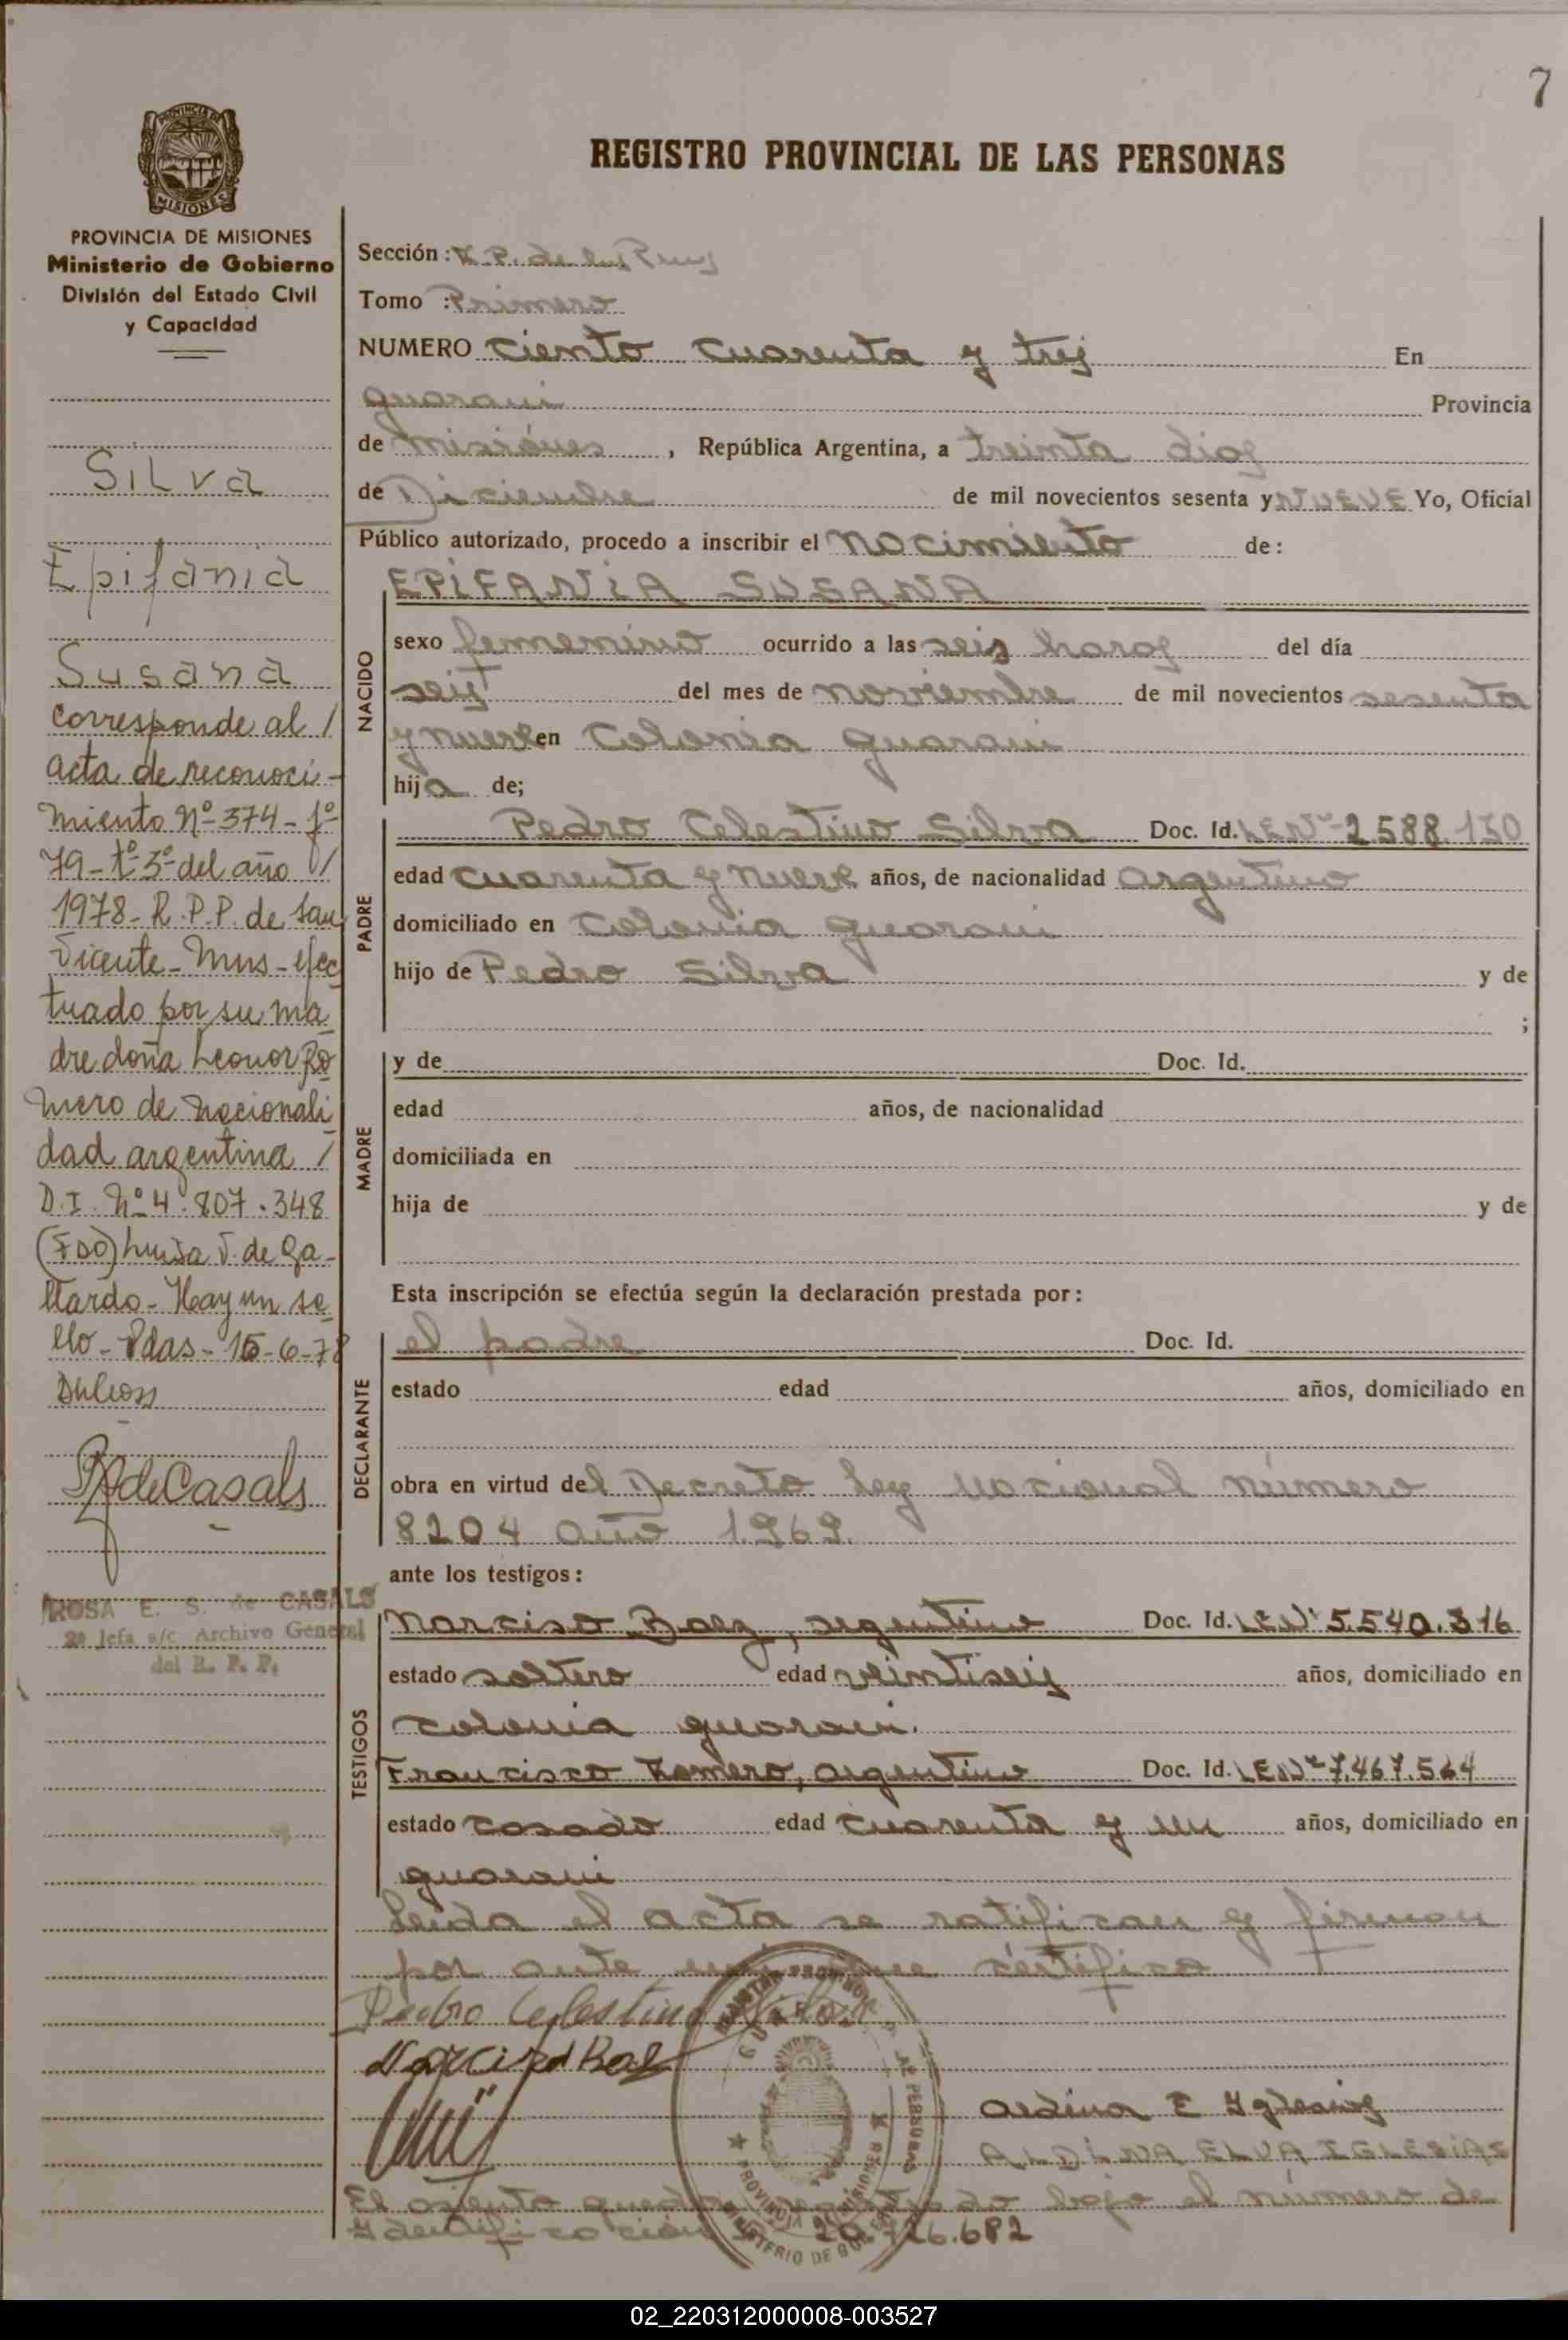 7
PROVINCIA DE
MISIONES
REGISTRO PROVINCIAL DE LAS PERSONAS
PROVINCIA DE MISIONES
Ministerio de Gobierno
División del Estado Civil
y Capacidad
Silva
Epifania
Susana
corresponde al /
acta de reconoci-
miento Nº 374 - fº
79 - tº 3º del año /
1978 - R.P.P. de San
Vicente - Mns - efec
tuado por su ma
dre doña Leonor Ro
mero de nacionali
dad argentina /
D.I. Nº 4.807.348
(FDO) Luisa J. de Ga-
llardo - Hay un se
llo - Pdas - 15-6-78
de Casals
ROSA E. S. de CASALS
2º Jefa a/c Archivo General
del R. P. P.
Sección: R.P. de las
Tomo: Primero
NUMERO ciento cuarenta y tres En
guarani Provincia
de misiones, República Argentina, a treinta dias
de Diciembre de mil novecientos sesenta y NUEVE Yo, Oficial
Público autorizado, procedo a inscribir el nacimiento de:
NACIDO
EPIFANIA SUSANA
sexo femenino ocurrido a las seis horas del día
seis del mes de noviembre de mil novecientos sesenta
y nueve en Colonia guarani
hija de;
PADRE
Pedro Celestino Silva Doc. Id. LE Nº 2.588.130
edad cuarenta y nueve años, de nacionalidad argentino
domiciliado en Colonia guarani
hijo de Pedro Silva y de
;
MADRE
y de Doc. Id.
edad años, de nacionalidad
domiciliada en
hija de y de
Esta inscripción se efectúa según la declaración prestada por:
DECLARANTE
el padre Doc. Id.
estado edad años, domiciliado en
obra en virtud del Decreto Ley Nacional número
8204 año 1.969.
ante los testigos:
TESTIGOS
Narciso Baez, argentino Doc. Id. LE Nº 5.540.316
estado soltero edad veintiseis años, domiciliado en
colonia guarani.
Francisco Romero, argentino Doc. Id. LE Nº 7.467.564
estado casado edad cuarenta y un años, domiciliado en
guarani
Leida el acta se ratifican y firman
por ante mi que certifico
Pedro Celestino Silva
Narciso Baez
Aldina E Iglesias
ALDINA ELVA IGLESIAS
El asiento queda registrado bajo el número de
Identificación 20.726.682
02_220312000008-003527